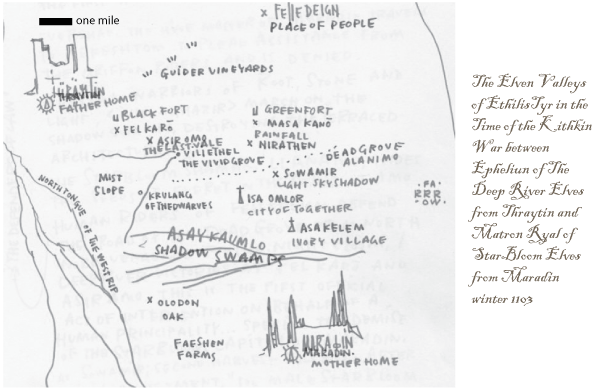 one mile
x FElleDEIGN
PLACE OF PEOPLE
GUIDER VINEYARDS
THRAYTIN
FATHER HOME
BLACK FORT
x FELKARŌ
x ASIROMO
THE LAST VALE
VILIETHEL
THE VIVIDGROVE
GREENFORT
x MASA KANŌ
RAINFALL
x NIRATHEN
DEADGROVE
ALANIMO
x SOWAMIR
LIGHT SKYSHADOW
MIST
SLOPE
KRULANG
OF THE DWARVES
ISA OMLOR
CITY OF TOGETHER
·FA·
RRR
-OW·
NORTH TONGUE OF THE WEST RIP
ASAYKAUMLO
SHADOW SWAMPS
ASAKELEM
IVORY VILLAGE
x OLODON
OAK
FAESHEN
FARMS
MARADIN
MARADIN·
MOTHER HOME
The Elven Valleys
of EthilisTyr in the
Time of the Kithkin
War between
Ephelian of The
Deep River Elves
from Thraytin and
Matron Ryal of
Star-Bloom Elves
from Maradin
winter 1103